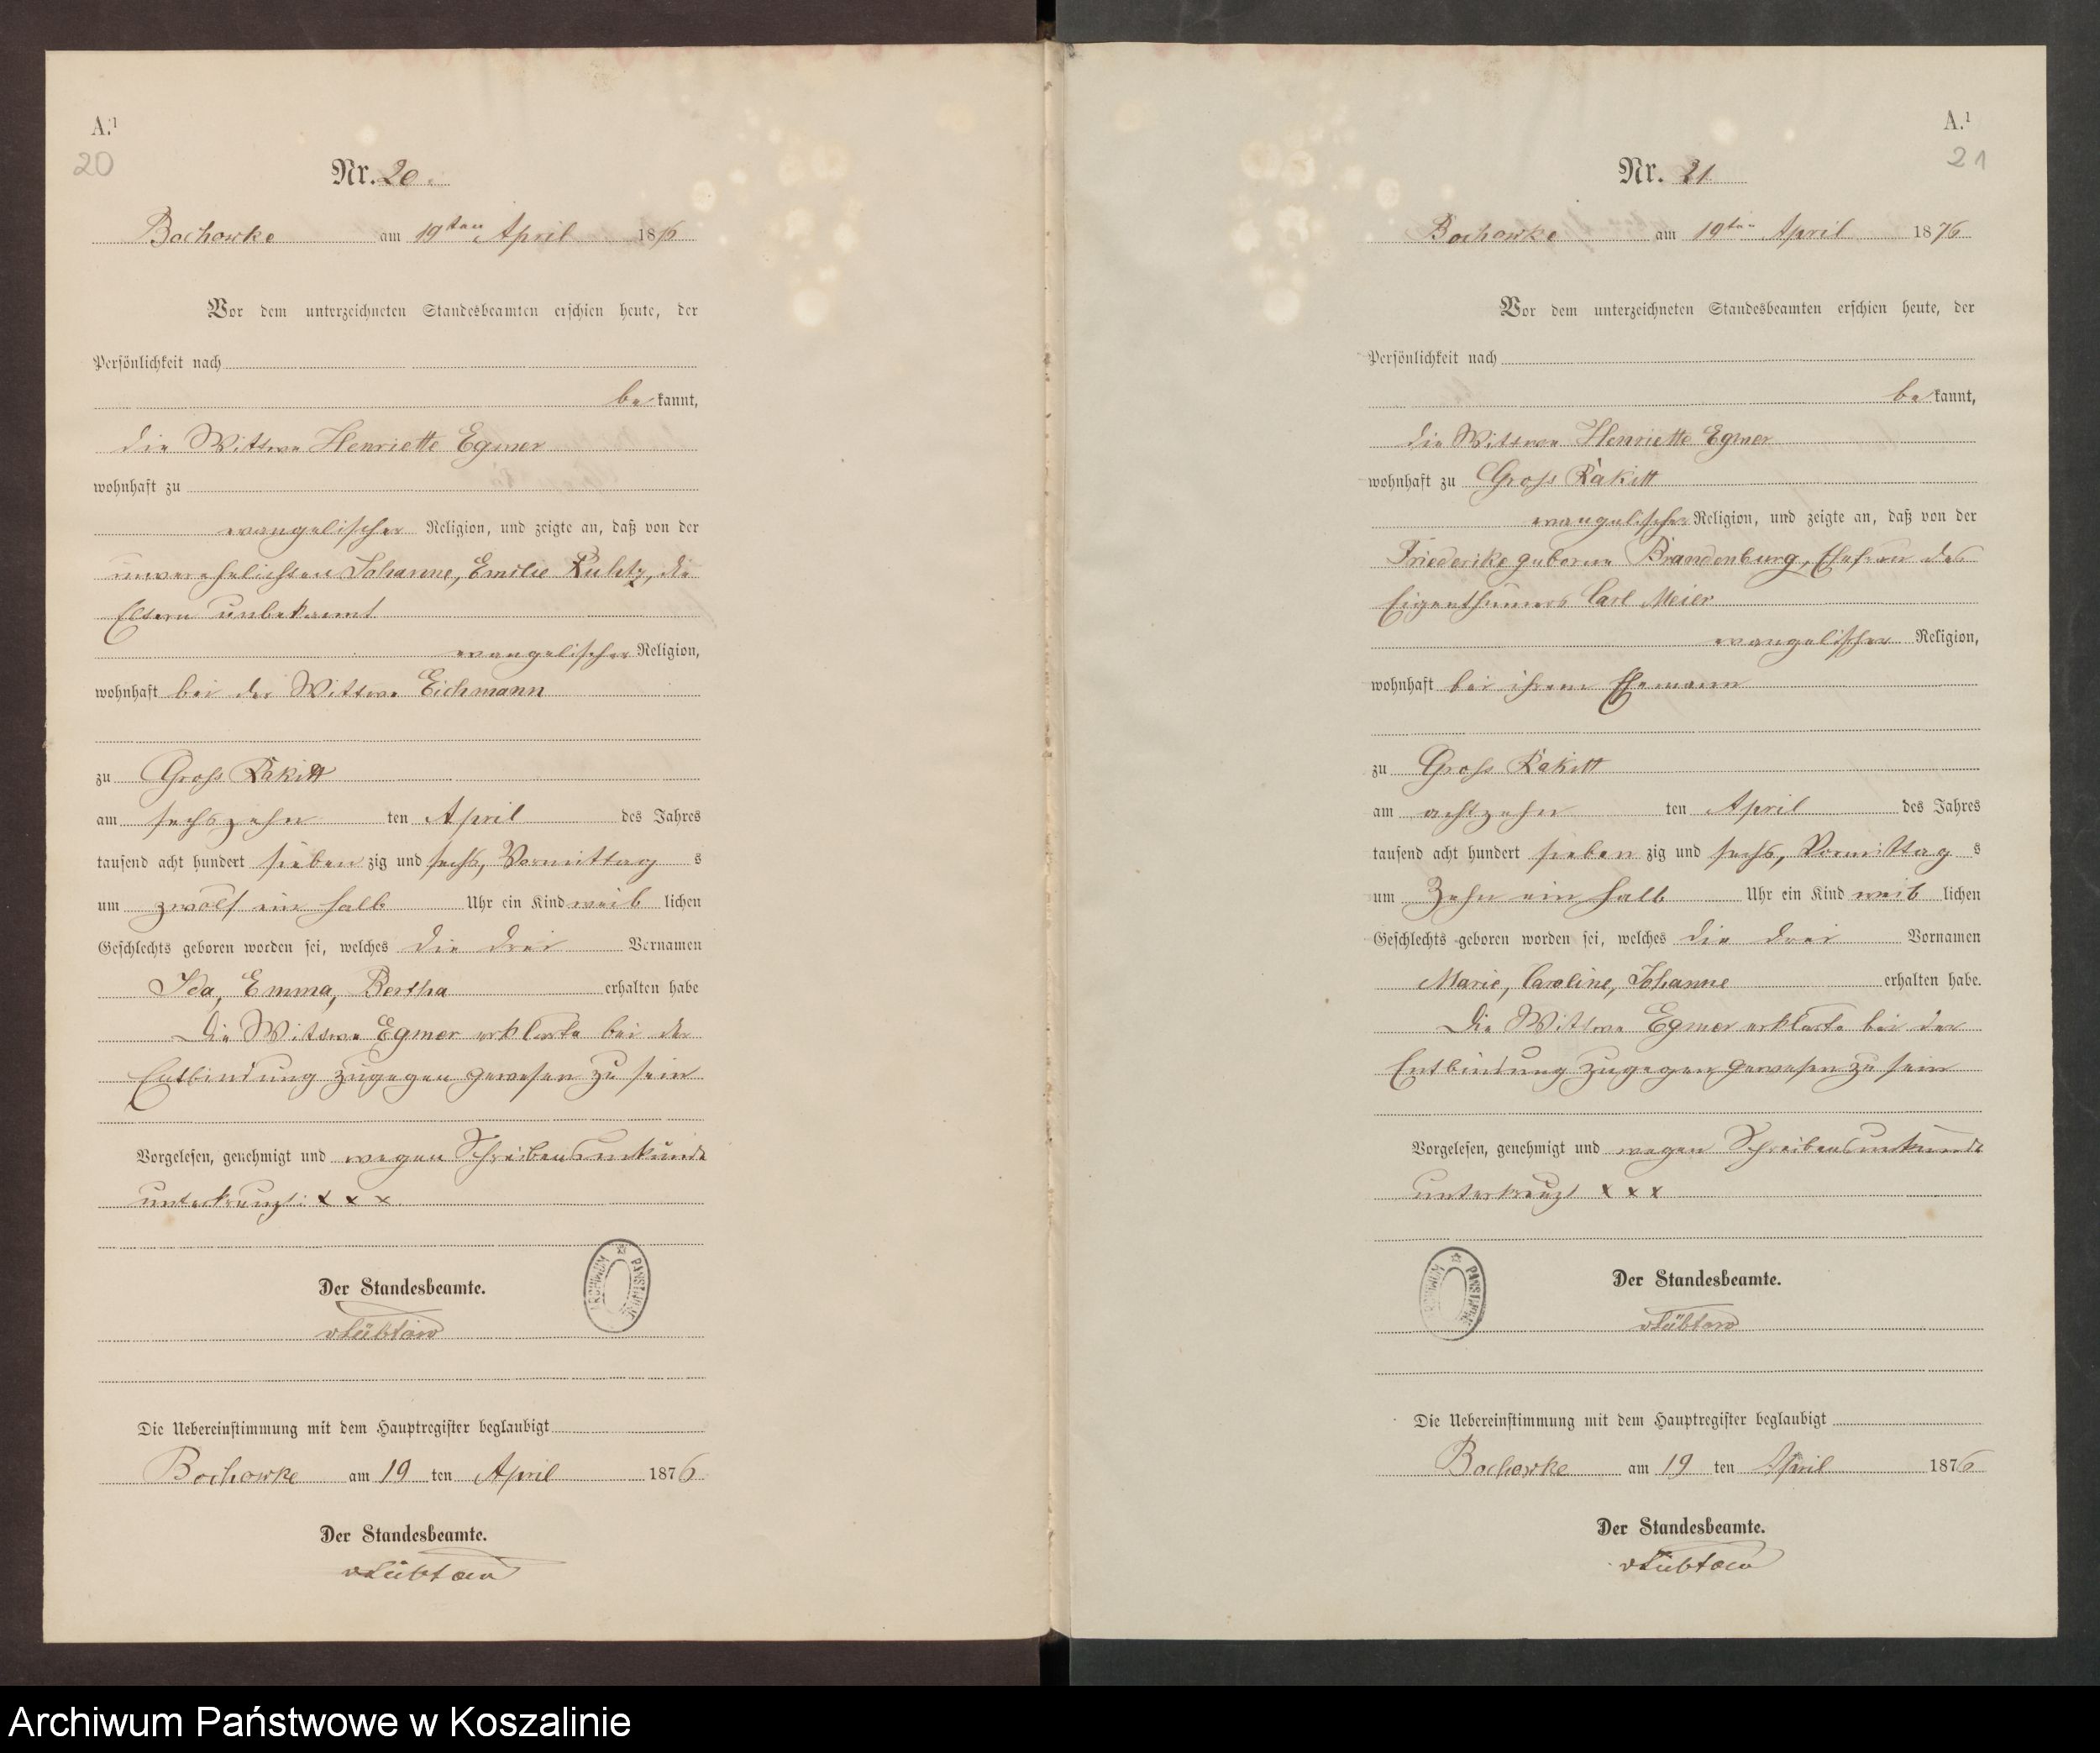 A.¹
20
Nr. 20.
Bochowke am 19ten April 1876
Vor dem unterzeichneten Standesbeamten erschien heute, der
Persönlichkeit nach
be kannt,
die Wittwe Henriette Egmer
wohnhaft zu
evangelischer Religion, und zeigte an, daß von der
unverehelichten Johanne, Emilie Ruhtz, die
Eltern unbekannt
evangelischer Religion,
wohnhaft bei der Wittwe Eichmann
zu Gross Rakitt
am sechszehn ten April des Jahres
tausend acht hundert sieben zig und sechs, Vormittag s
um zwölf ein halb Uhr ein Kind weib lichen
Geschlechts geboren worden sei, welches die drei Vornamen
Ida, Emma, Bertha erhalten habe
Die Wittwe Egmer erklärte bei der
Entbindung zugegen gewesen zu sein
Vorgelesen, genehmigt und wegen Schreibensunkunde
unterkreuzt: x x x
Der Standesbeamte.
vLübtow
ARCHIWUM PAŃSTWOWE
Die Uebereinstimmung mit dem Hauptregister beglaubigt
Bochowke am 19 ten April 1876
Der Standesbeamte.
vLübtow
A.¹
21
Nr. 21
Bochowke am 19ten April 1876
Vor dem unterzeichneten Standesbeamten erschien heute, der
Persönlichkeit nach
be kannt,
die Wittwe Henriette Egmer
wohnhaft zu Gross Rakitt
evangelischer Religion, und zeigte an, daß von der
Friederike geborne Brandenburg, Ehefrau des
Eigenthümers Carl Meier
evangelischer Religion,
wohnhaft bei ihrem Ehemann
zu Gross Rakitt
am achtzehn ten April des Jahres
tausend acht hundert sieben zig und sechs, Vormittag s
um Zehn ein halb Uhr ein Kind weib lichen
Geschlechts geboren worden sei, welches die drei Vornamen
Marie, Caroline, Johanne erhalten habe.
Die Wittwe Egmer erklärte bei der
Entbindung zugegen gewesen zu sein
Vorgelesen, genehmigt und wegen Schreibensunkunde
unterkreuzt x x x
Der Standesbeamte.
vLübtow
ARCHIWUM PAŃSTWOWE
Die Uebereinstimmung mit dem Hauptregister beglaubigt
Bochowke am 19 ten April 1876
Der Standesbeamte.
vLübtow
Archiwum Państwowe w Koszalinie